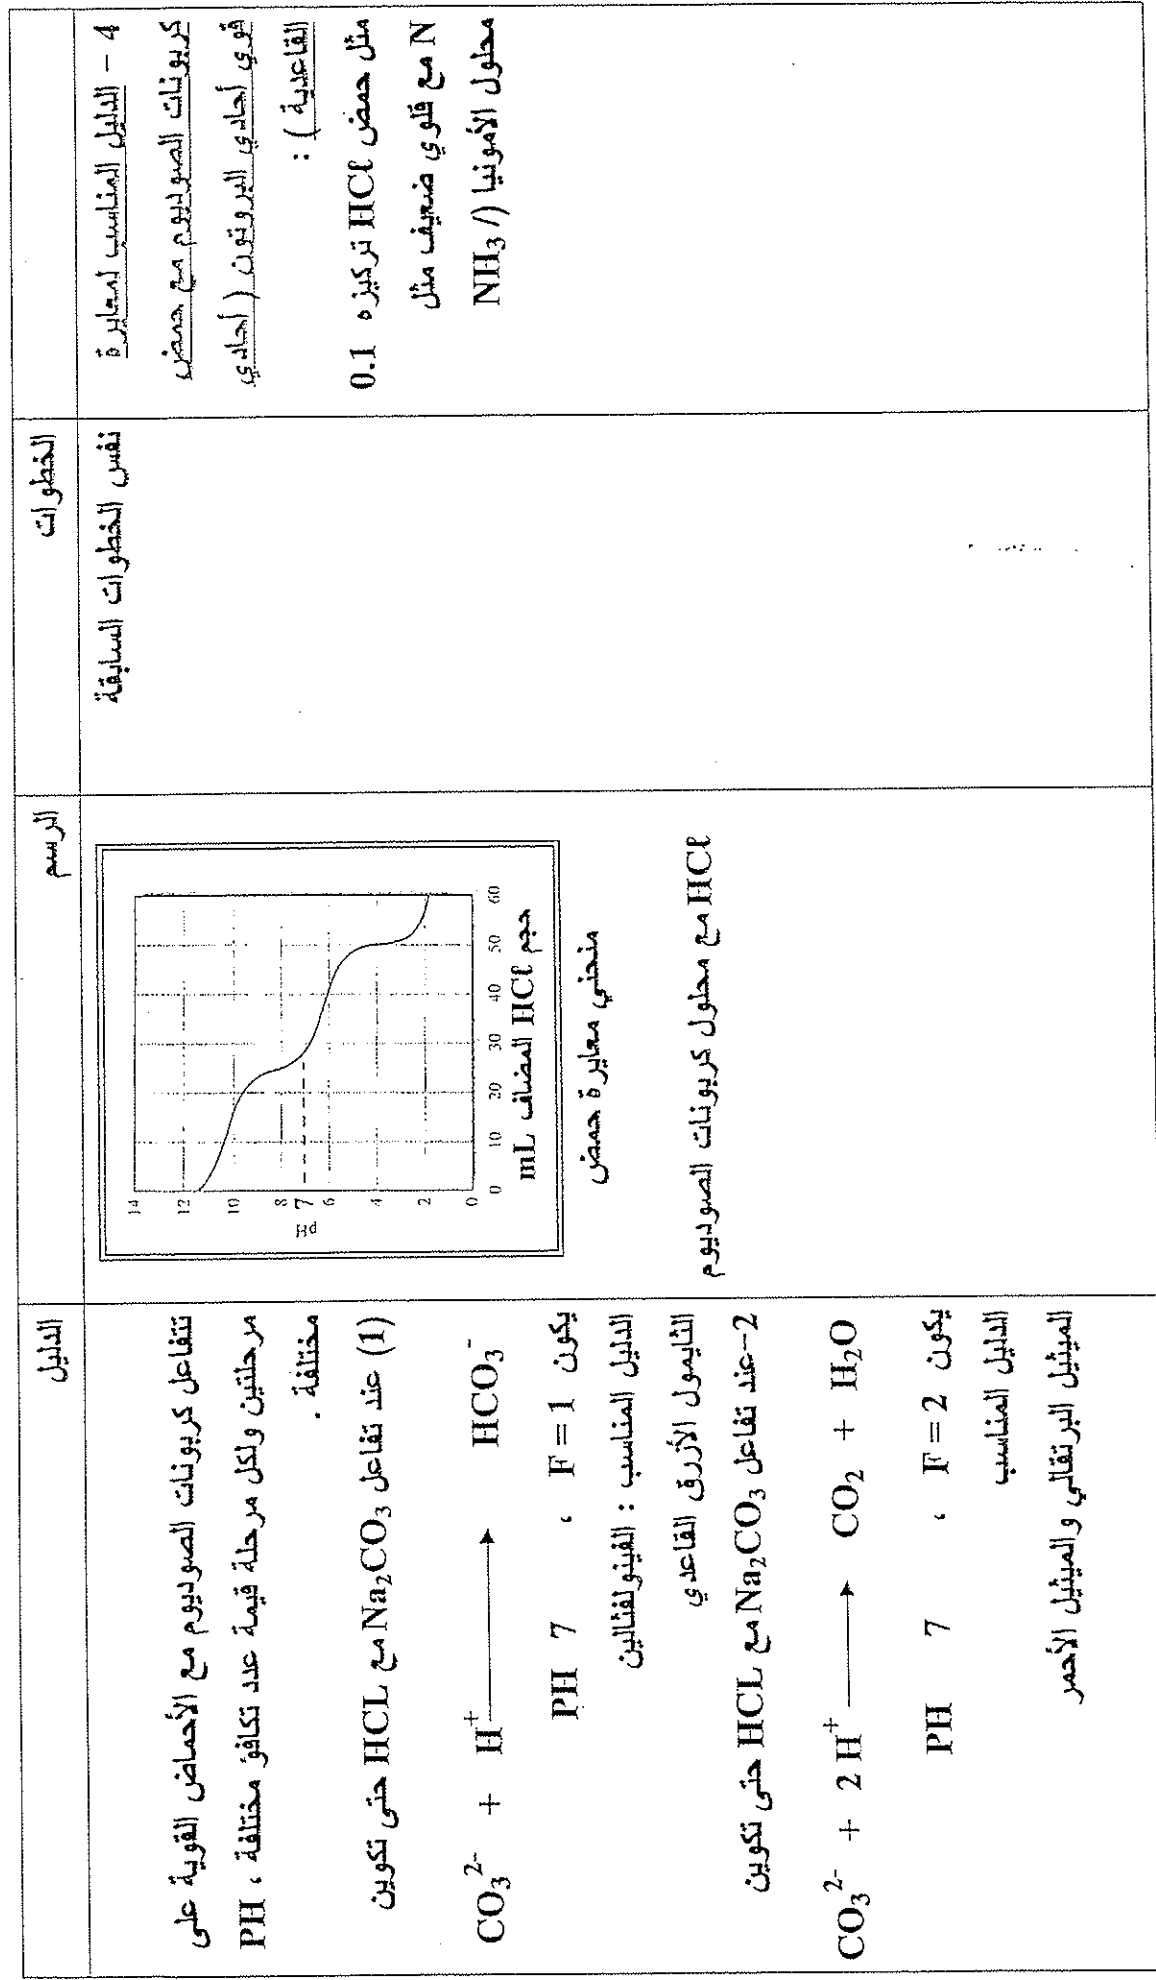 الخطوات
الرسم
الدليل
4 – الدليل المناسب لمعايرة
كربونات الصوديوم مع حمض
قوي أحادي البروتون ( أحادي
القاعدية ) :
مثل حمض HCℓ تركيزه 0.1
N مع قلوي ضعيف مثل
محلول الأمونيا (/ NH₃
نفس الخطوات السابقة
14
12
10
8
7
6
4
2
0
PH
0 10 20 30 40 50 60
حجم HCℓ المضاف mL
منحني معايرة حمض
HCℓ مع محلول كربونات الصوديوم
تتفاعل كربونات الصوديوم مع الأحماض القوية على
مرحلتين ولكل مرحلة قيمة عدد تكافؤ مختلفة ، PH
مختلفة .
(1) عند تفاعل Na₂CO₃ مع HCL حتى تكوين
CO₃²⁻ + H⁺ ⟶ HCO₃⁻
يكون F = 1 ، PH 7
الدليل المناسب : الفينولفثالين
الثايمول الأزرق القاعدي
2–عند تفاعل Na₂CO₃ مع HCL حتى تكوين
CO₃²⁻ + 2 H⁺ ⟶ CO₂ + H₂O
يكون F = 2 ، PH 7
الدليل المناسب
الميثيل البرتقالي والميثيل الأحمر